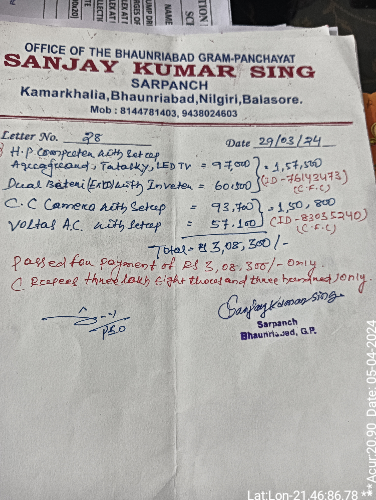 OFFICE OF THE BHAUNRIABAD GRAM-PANCHAYAT
SANJAY KUMAR SING
SARPANCH
Kamarkhalia, Bhaunriabad, Nilgiri, Balasore.
Mob : 8144781403, 9438024603
Letter No. 28 Date 29/03/24
H.P Computer with Setup
Aquaguard, Tatasky, LED TV = 97,000 } = 1,57,500
Dual Bateri (Exid) with Inveter = 60,500 } (ID-76143473)
(C.F.C)
C.C Camera with Setup = 93,700 } = 1,50,800
Voltas A.C. with setup = 57,100 } (ID-83055240)
(C.F.C)
Total = ₹ 3,08,300/-
Passed for payment of Rs 3,08,300/- Only
(Rupees three lakh eight thousand three hundred) only.
Sanjay Kumar Sing
Sarpanch
Bhaunriabad, G.P.
PEO
Lat:Lon-21.46:86.78
**Acur:20.90 Date: 05-04-2024